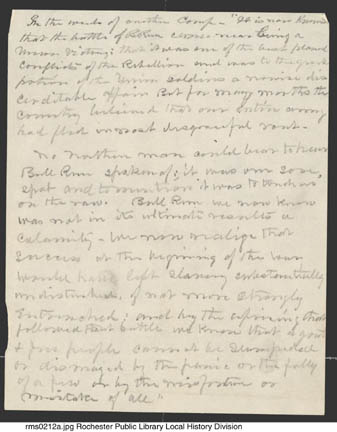 In the words of another Comp - "It is now known
that the battle of Bull Run came near being a
Union Victory; that it was one of the best planned
conflicts of the Rebellion and was to the great
portion of the Union soldiers a no wise dis
creditable affair But for many months the
country believed that our entire army
had fled in most disgraceful rout.
No northern man could bear to hear
Bull Run spoken of; it was our sore
spot and to mention it was to touch us
on the raw. Bull Run we now know
was not in its ultimate results a
calamity - We now realize that
success at the beginning of the war
would have left Slavery substantially
undisturbed, if not more strongly
Entrenched; and by the uprising that
followed that battle we know that a great
& free people cannot be stampeded
or dismayed by the panic or the folly
of a few or by the misfortune or
mistake of all"
rms0212a.jpg Rochester Public Library Local History Division